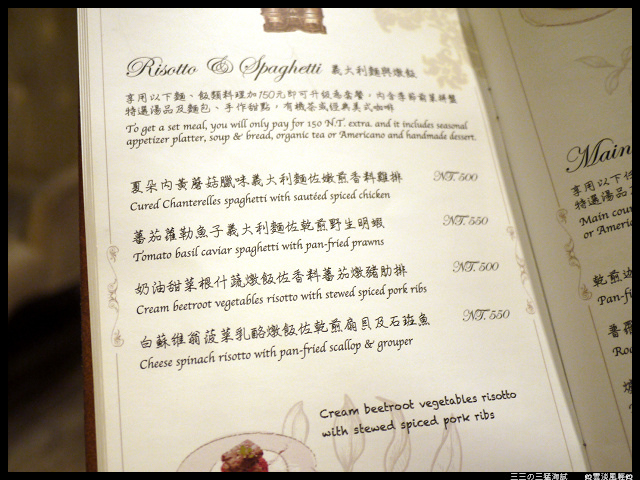 Risotto & Spaghetti 義大利麵與燉飯
享用以下麵、飯類料理加150元即可升級為套餐，內含季節前菜拼盤
特選湯品及麵包、手作甜點，有機茶或經典美式咖啡
To get a set meal, you will only pay for 150 N.T. extra. and it includes seasonal
appetizer platter, soup & bread, organic tea or Americano and handmade dessert.
夏朵內黃蘑菇臘味義大利麵佐燉煎香料雞排 NT. 500
Cured Chanterelles spaghetti with sautéed spiced chicken
蕃茄蘿勒魚子義大利麵佐乾煎野生明蝦 NT. 550
Tomato basil caviar spaghetti with pan-fried prawns
奶油甜菜根什蔬燉飯佐香料蕃茄燉豬肋排 NT. 500
Cream beetroot vegetables risotto with stewed spiced pork ribs
白蘇維翁菠菜乳酪燉飯佐乾煎扇貝及石斑魚 NT. 550
Cheese spinach risotto with pan-fried scallop & grouper
Cream beetroot vegetables risotto
with stewed spiced pork ribs
Main
享用以下
特選湯品
Main cour
or Americ
乾煎
Pan-f
三三の三猛海賊